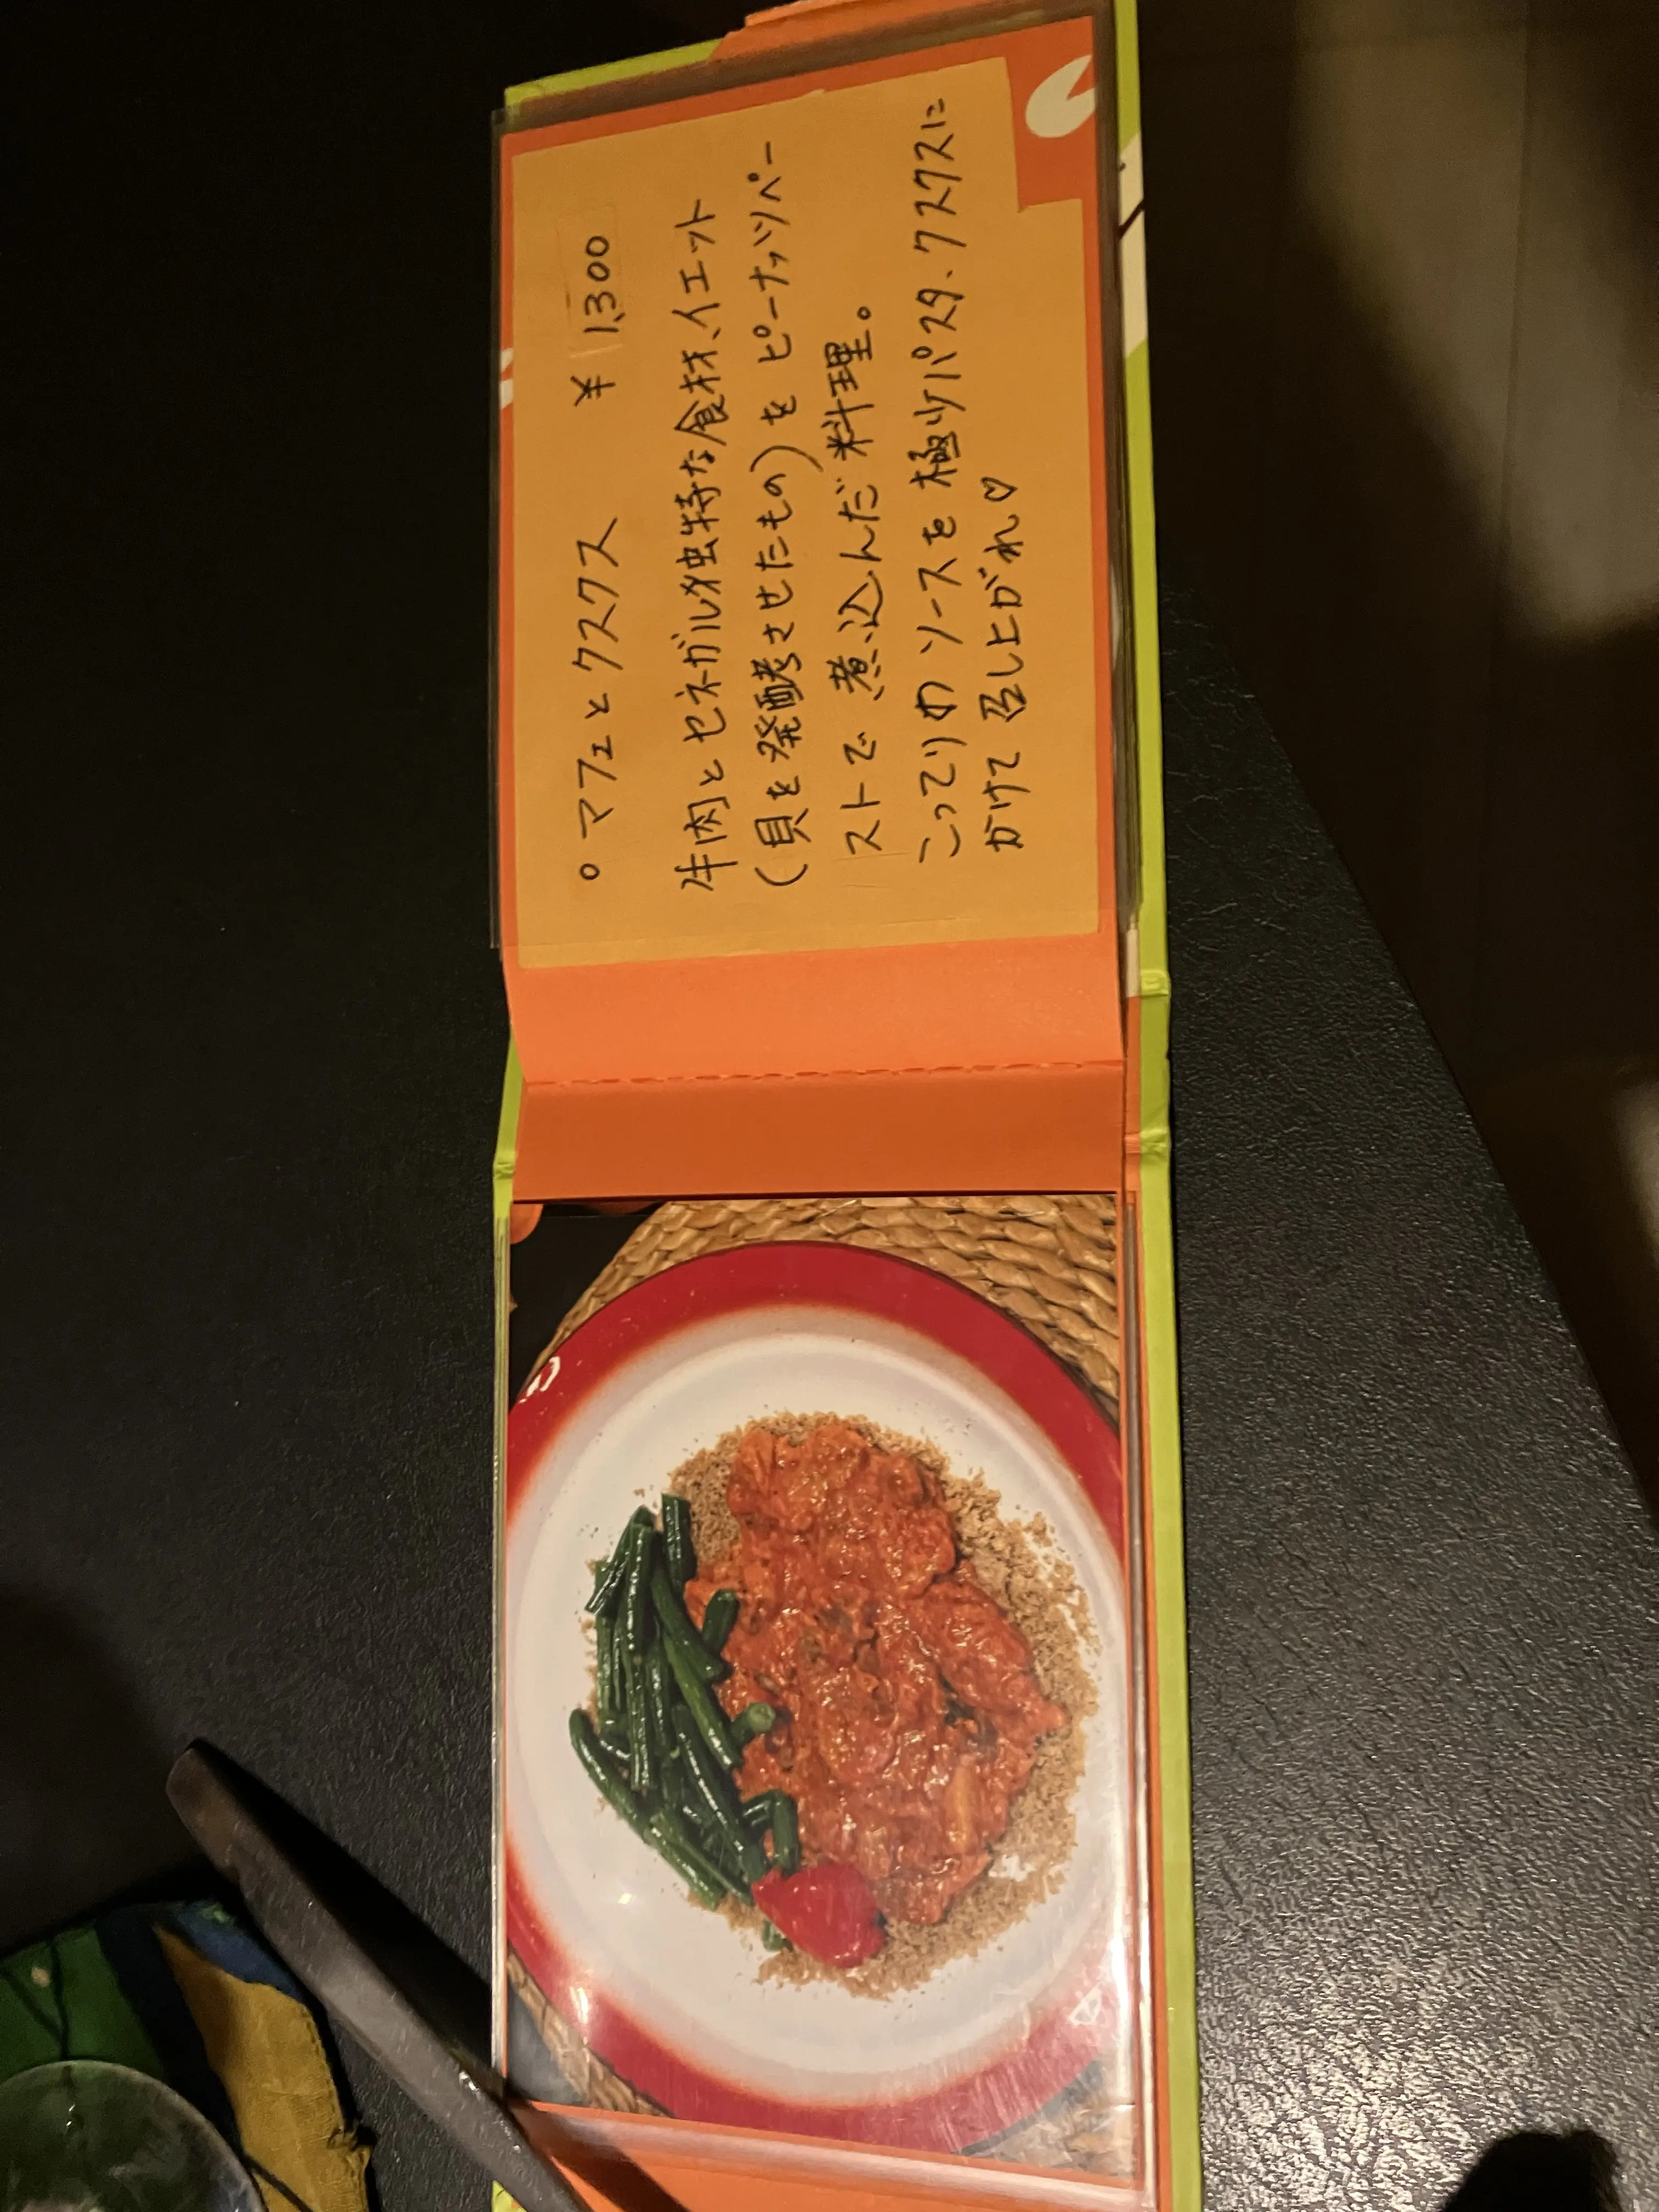 ○ マフェとクスクス ¥ 1,300
牛肉とセネガル独特な食材、イエット
(貝を発酵させたもの)をピーナッツペー
ストで煮込んだ料理。
こってりめソースを極少パスタ、クスクスに
かけて召し上がれ♡